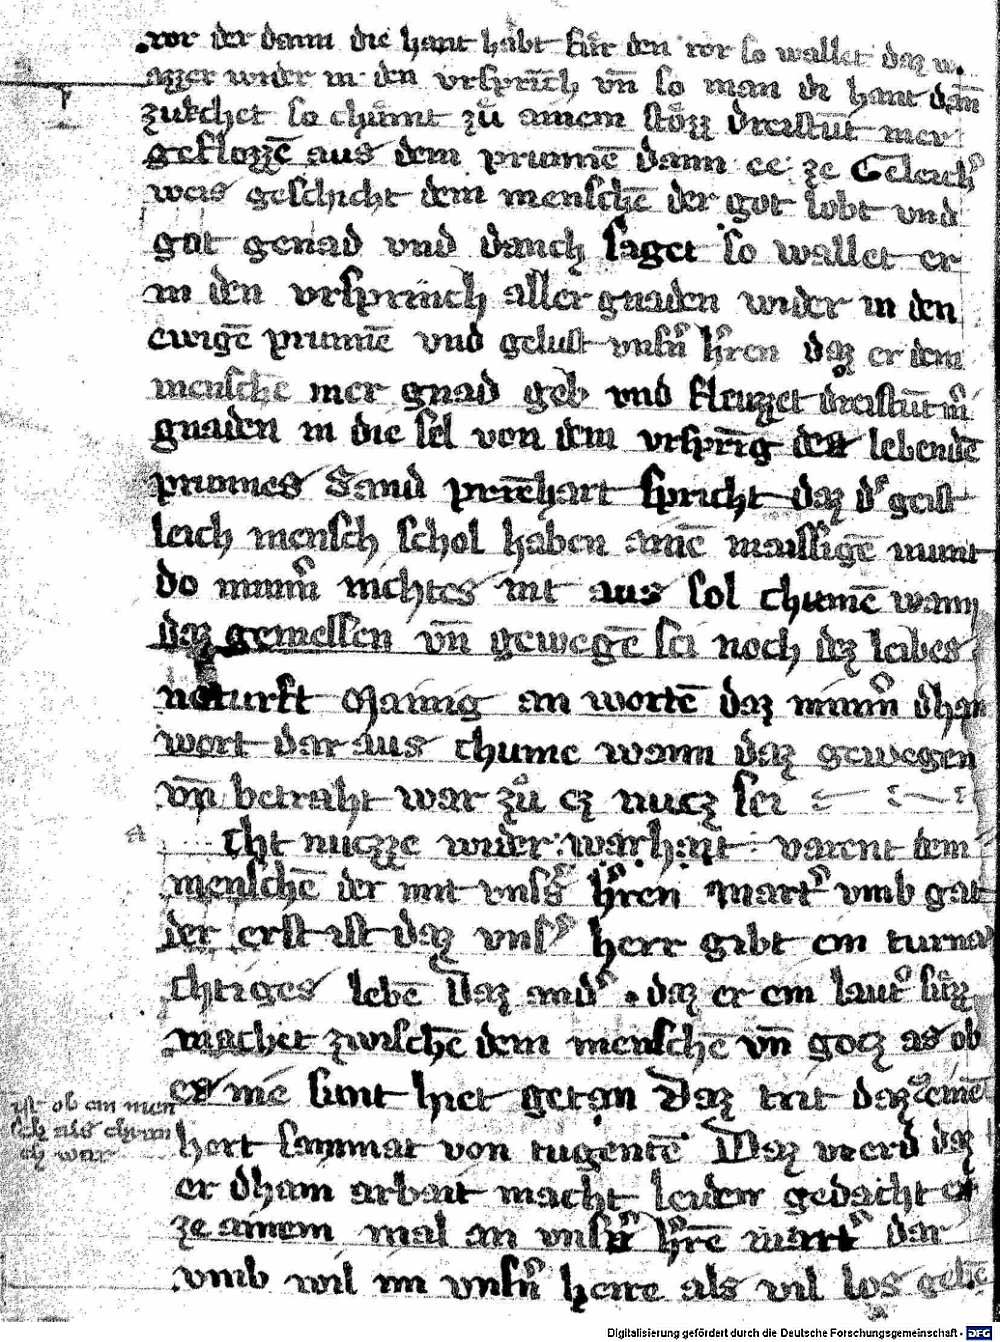 ror der dann die hant habt für den ror so wallet daz w
azzer wider in den vrsprīch vn̄ so man di hant dan̄
zukchet so chümt zů ainem stözz dreistūt mer
geflozzē aus dem prunnē dann ee ze Geleich
weis geschicht dem menschē der got lobt vnd
got genad vnd danch saget so wallet er
in den vrsprinch aller gnaden wider in den
ewigē prunnē vnd gelust vnsn̄ hren daz er dem
menschē mer gnad geb vnd fleuzzet dreistūt m̄
gnaden in die sel von dem vrsprīg des lebendē
prunnes Sand pernhart spricht daz d geist
leich mensch schol haben ainē massigē munt
do nimm nichtes nit aus sol chumē wann
daz gemessen vn̄ gewegē sei noch dez leibes
noturft Mainig an wortē daz nimm dhain
wort dar aus chume wann daz gewegen
vn̄ betraht war zů ez nucz sei
Cht nuczze wider varent dem
menschē der mit vnss hren mart vmb gat
der erst ist daz vns herr gibt ein turna
chtiges lebē Daz and daz er ein laut sün
machet zwischē dem menschē vn̄ gocz as ob
er nie sunt hiet getan Daz trit daz emē
hort sammat von tugentē Daz vierd daz
er dhain arbait macht leiden gedacht er
ze ainem mal an vnsn hrē mart dar
vmb wil im vnsn herre als vil los gebē
ist ob ein men
sch als chran
ch war
Digitalisierung gefördert durch die Deutsche Forschungsgemeinschaft - DFG